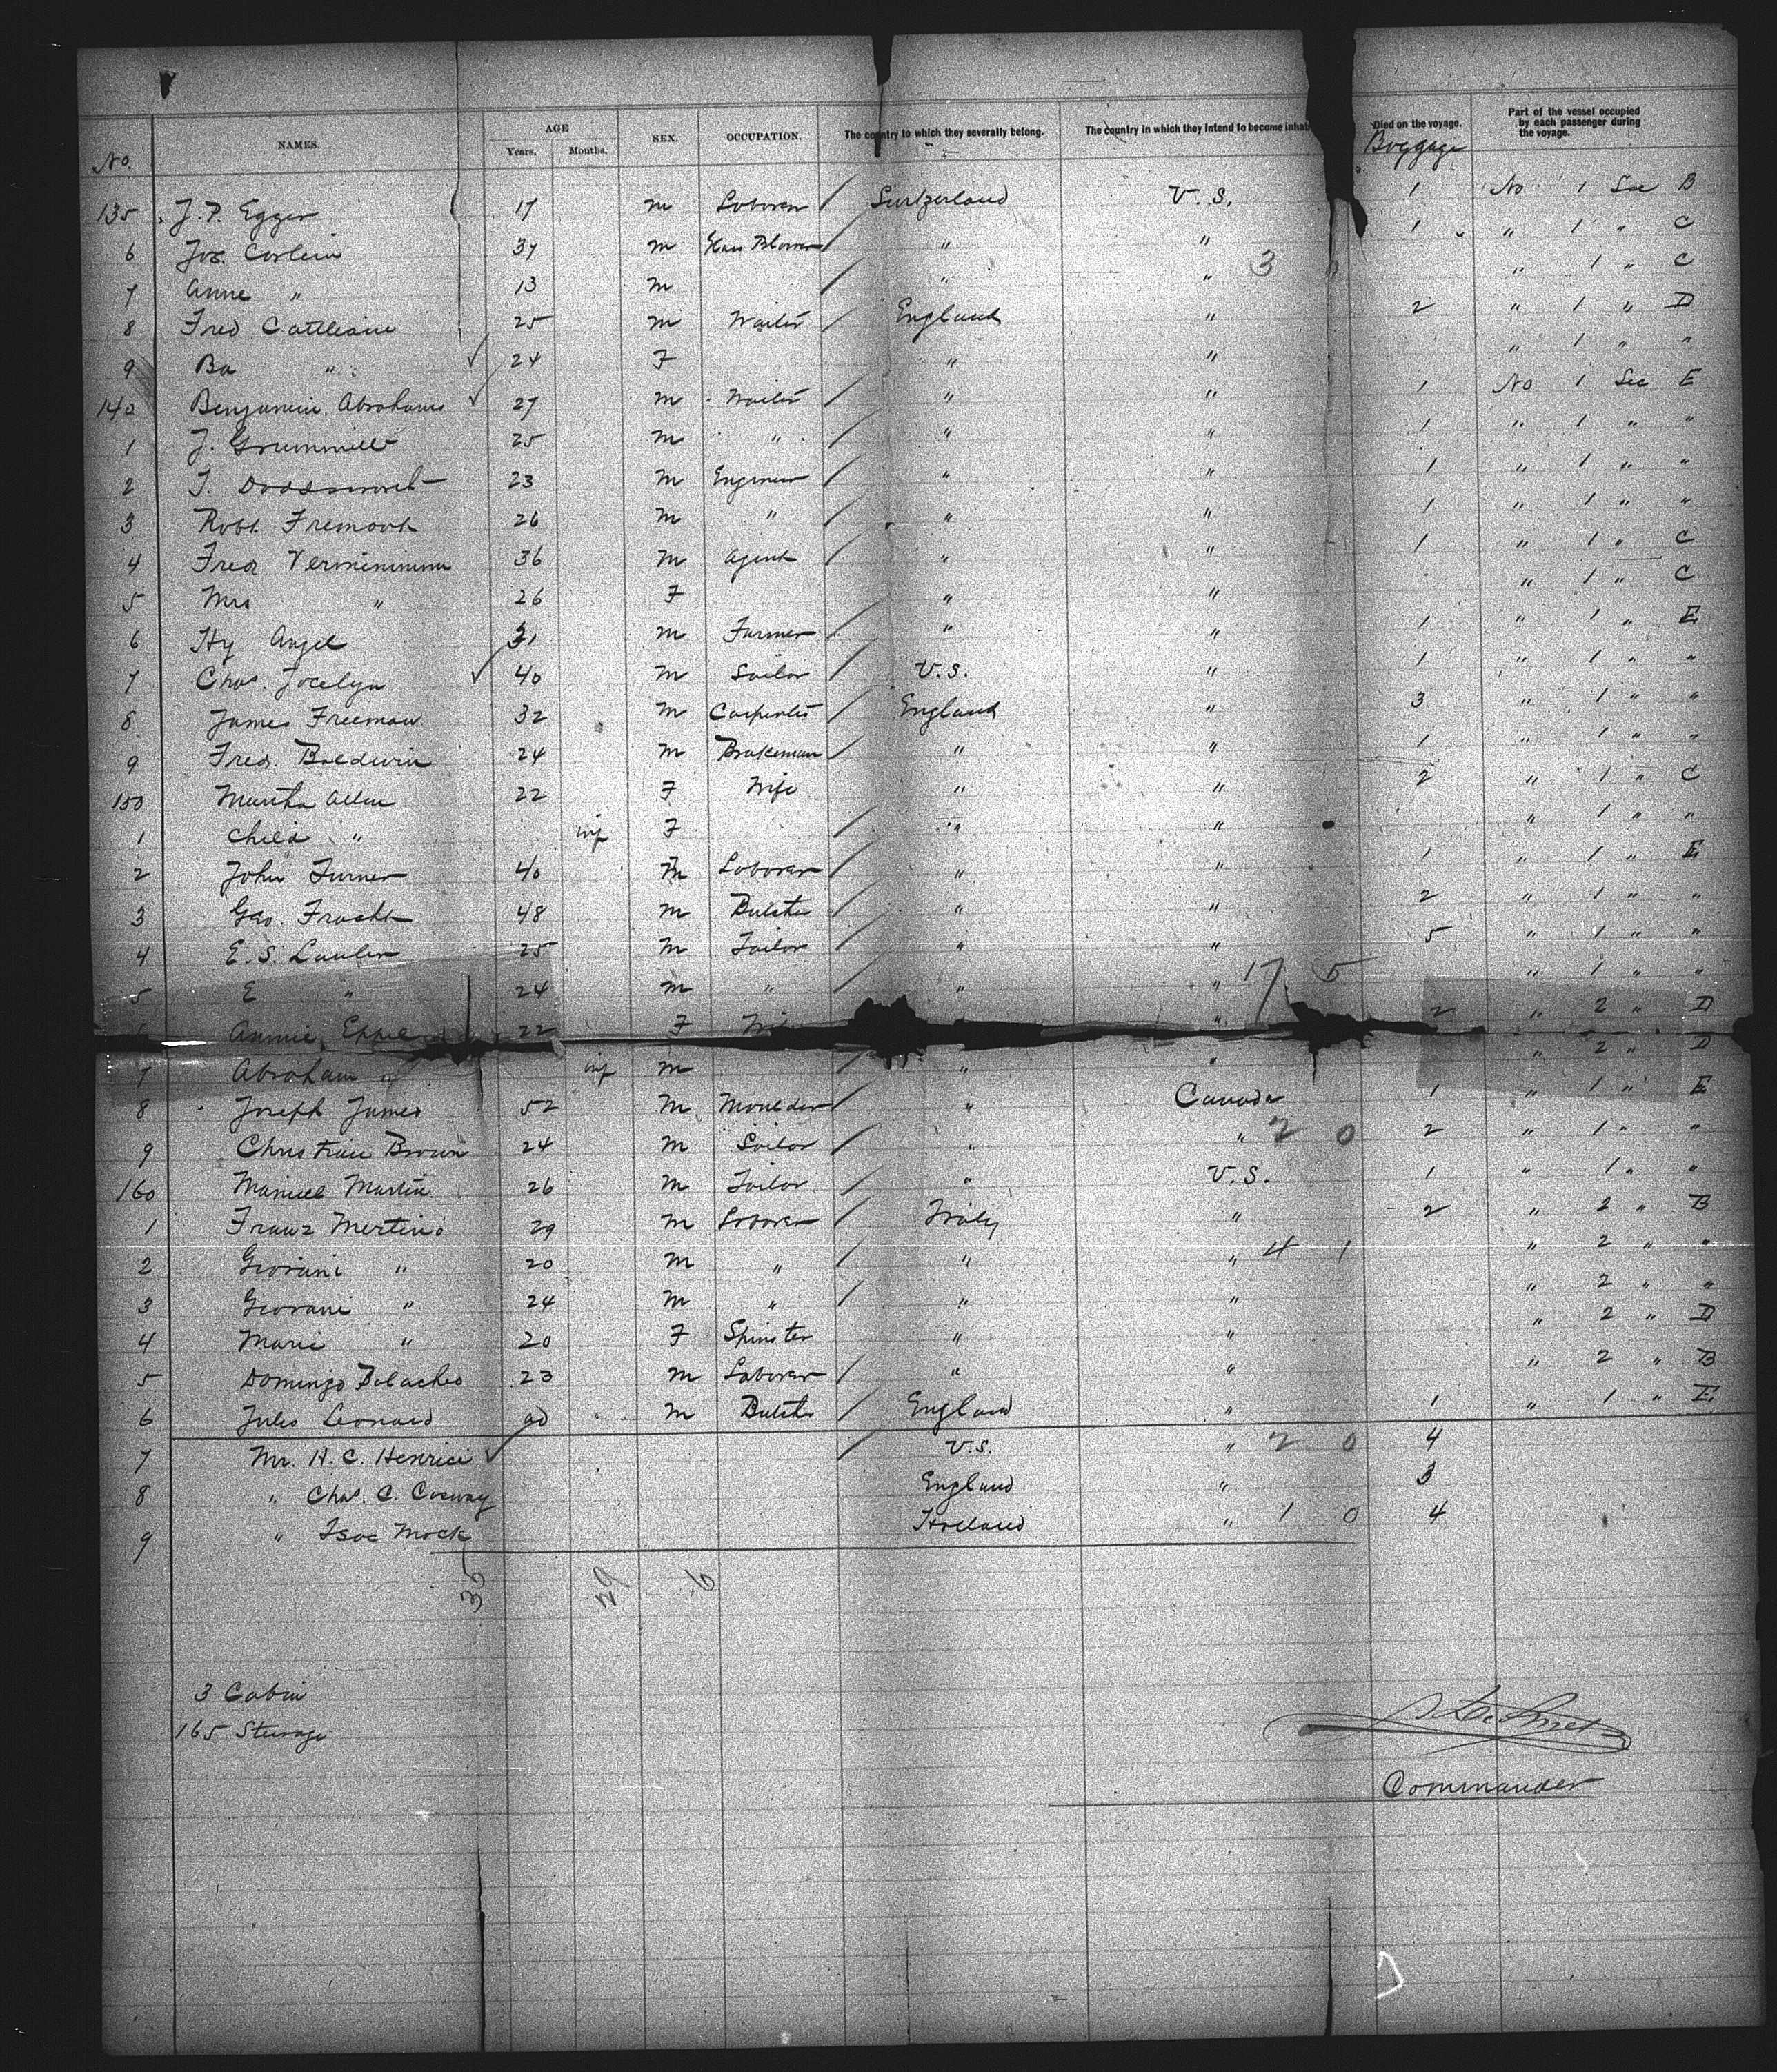 No. NAMES. AGE Years. Months. SEX. OCCUPATION. The country to which they severally belong. The country in which they intend to become inhab Died on the voyage. Baggage Part of the vessel occupied by each passenger during the voyage.
135 J. P. Egger 17 M Laborer / Switzerland U.S. 1 No 1 Sec B
6 Jos. 37 M Glass Blower / " " 1 " 1 " C
7 Anne " 13 M / " " 3 " 1 " C
8 Fred 25 M Waiter / England " 2 " 1 " D
9 " 24 F " " " 1 " "
140 Benjamin Abrahams 27 M Waiter / " " 1 No 1 Sec E
1 J. 25 M " / " " 1 " 1 " "
2 23 M Engineer / " " 1 " 1 " "
3 Robt. 26 M " / " " 1 " 1 " "
4 Fred 36 M Agent / " " 1 " 1 " C
5 Mrs " 26 F " " " 1 " C
6 Hy Angel 31 M Farmer / " " 1 " 1 " E
7 Chas. Jocelyn 40 M Sailor / U.S. " 1 " 1 " "
8 James Freeman 32 M Carpenter / England " 3 " 1 " "
9 Fred. Baldwin 24 M Brakeman / " " 1 " 1 " "
150 Martha Allen 22 F Wife " " 2 " 1 " C
1 Child " inf F / " " " 1 " "
2 John Turner 40 M Laborer / " " 1 " 1 " E
3 Geo. 48 M Butcher / " " 2 " 1 " "
4 E. S. Lawler 25 M Tailor / " " 5 " 1 " "
5 E " 24 M " / " " 17 5 " 1 " "
Annie Eppel 22 F " 2 " 2 " D
7 Abraham " inf M / " " " 2 " D
8 Joseph James 52 M Moulder / " Canada 1 " 1 " E
9 Christian Brown 24 M Sailor / " " 2 0 2 " 1 " "
160 Manuel Martin 26 M Tailor / " U.S. 1 " 1 " "
1 Franz Mertino 29 M Laborer / Italy " 2 " 2 " B
2 Giovani " 20 M " / " " 4 1 " 2 " "
3 Giovani " 24 M " / " " " 2 " "
4 Marie " 20 F Spinster " " " 2 " D
5 Domingo 23 M Laborer / " " " 2 " B
6 Jules Leonard M Butcher / England " 1 " 1 " E
7 Mr. H. C. Henrici / U.S. " 2 0 4
8 " Chas. C. Cosway England " 3
9 " Isac Mock Holland " 1 0 4
35 29 6
3 Cabin
165 Steerage
Commander